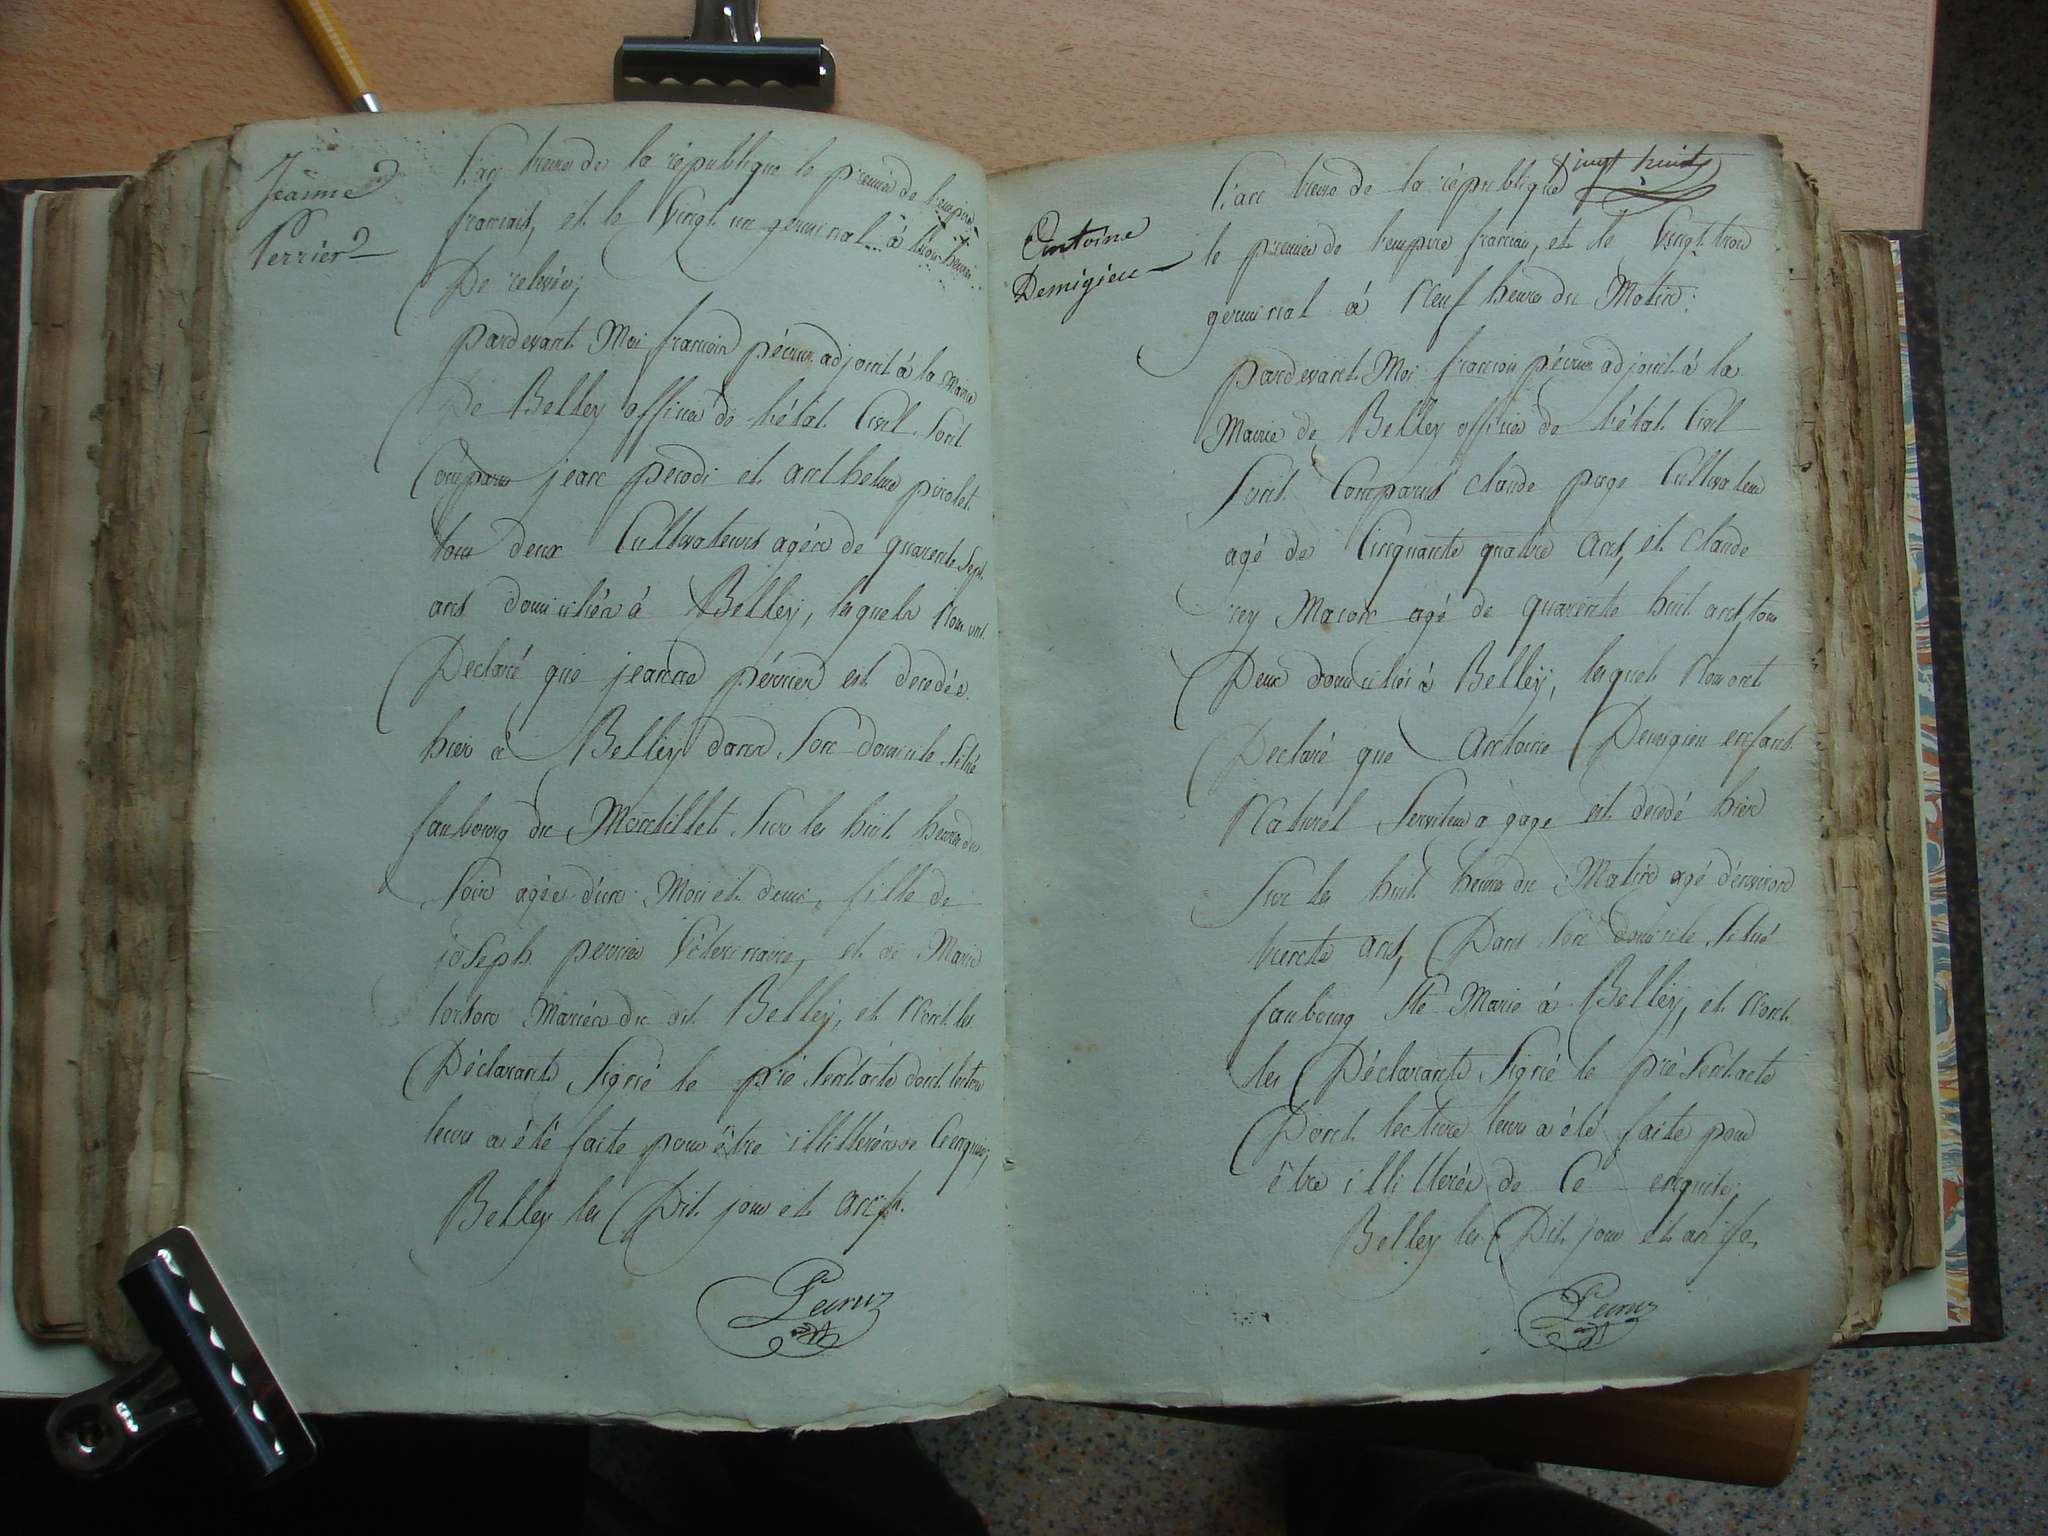 Jeanne
Perrier
L'an treize de la république le premier de l'empire
français, et le vingt un germinal à trois heures
De relevée;
pardevant Moi françois pécruz adjoint à la Mairie
De Belley officier de l'état Civil Sont
Comparus jean perodi et anthelme pirolet
tous deux Cultivateurs agés de quarente Sept
ans domiciliés à Belley, lesquels Nous ont
Declaré que jeanne périer est decedée
hier à Belley dans Son domicile Situé
faubourg du Montillet Sur les huit heures du
Soir agée d'un Mois et demi, fille de
joseph perrier Véterinaire, et de Marie
torton Mariés du dit Belley, et N'ont les
Déclarants Signé le pré Sent acte dont lecture
leurs a été faite pour être illitterés de Ce enquis;
Belley les Dit jour et an
Pecruz
vingt huit
Antoine
Demigieu
L'an treize de la république
le premier de l'empire français, et le Vingt trois
germinal à Neuf heures du Matin:
pardevant Moi françois pécruz adjoint à la
Mairie de Belley officier de l'état Civil
Sont Comparus Claude page Cultivateur
agé de Cinquante quatre ans, et Claude
rey Maçon agé de quarante huit ans, tous
Deux domiciliés à Belley, lesquels Nous ont
Declaré que Antoine Demigieu enfant
Naturel Serviteur à gage est decedé hier
Sur les huit heures du Matin agé d'environ
trente ans, Dans Son domicile Situé
faubourg Ste Marie à Belley, et N'ont
les Déclarants Signé le pré Sent acte
Dont lecture leurs a été faite pour
être illitterés de Ce enquis;
Belley les Dit jour et an
Pecruz